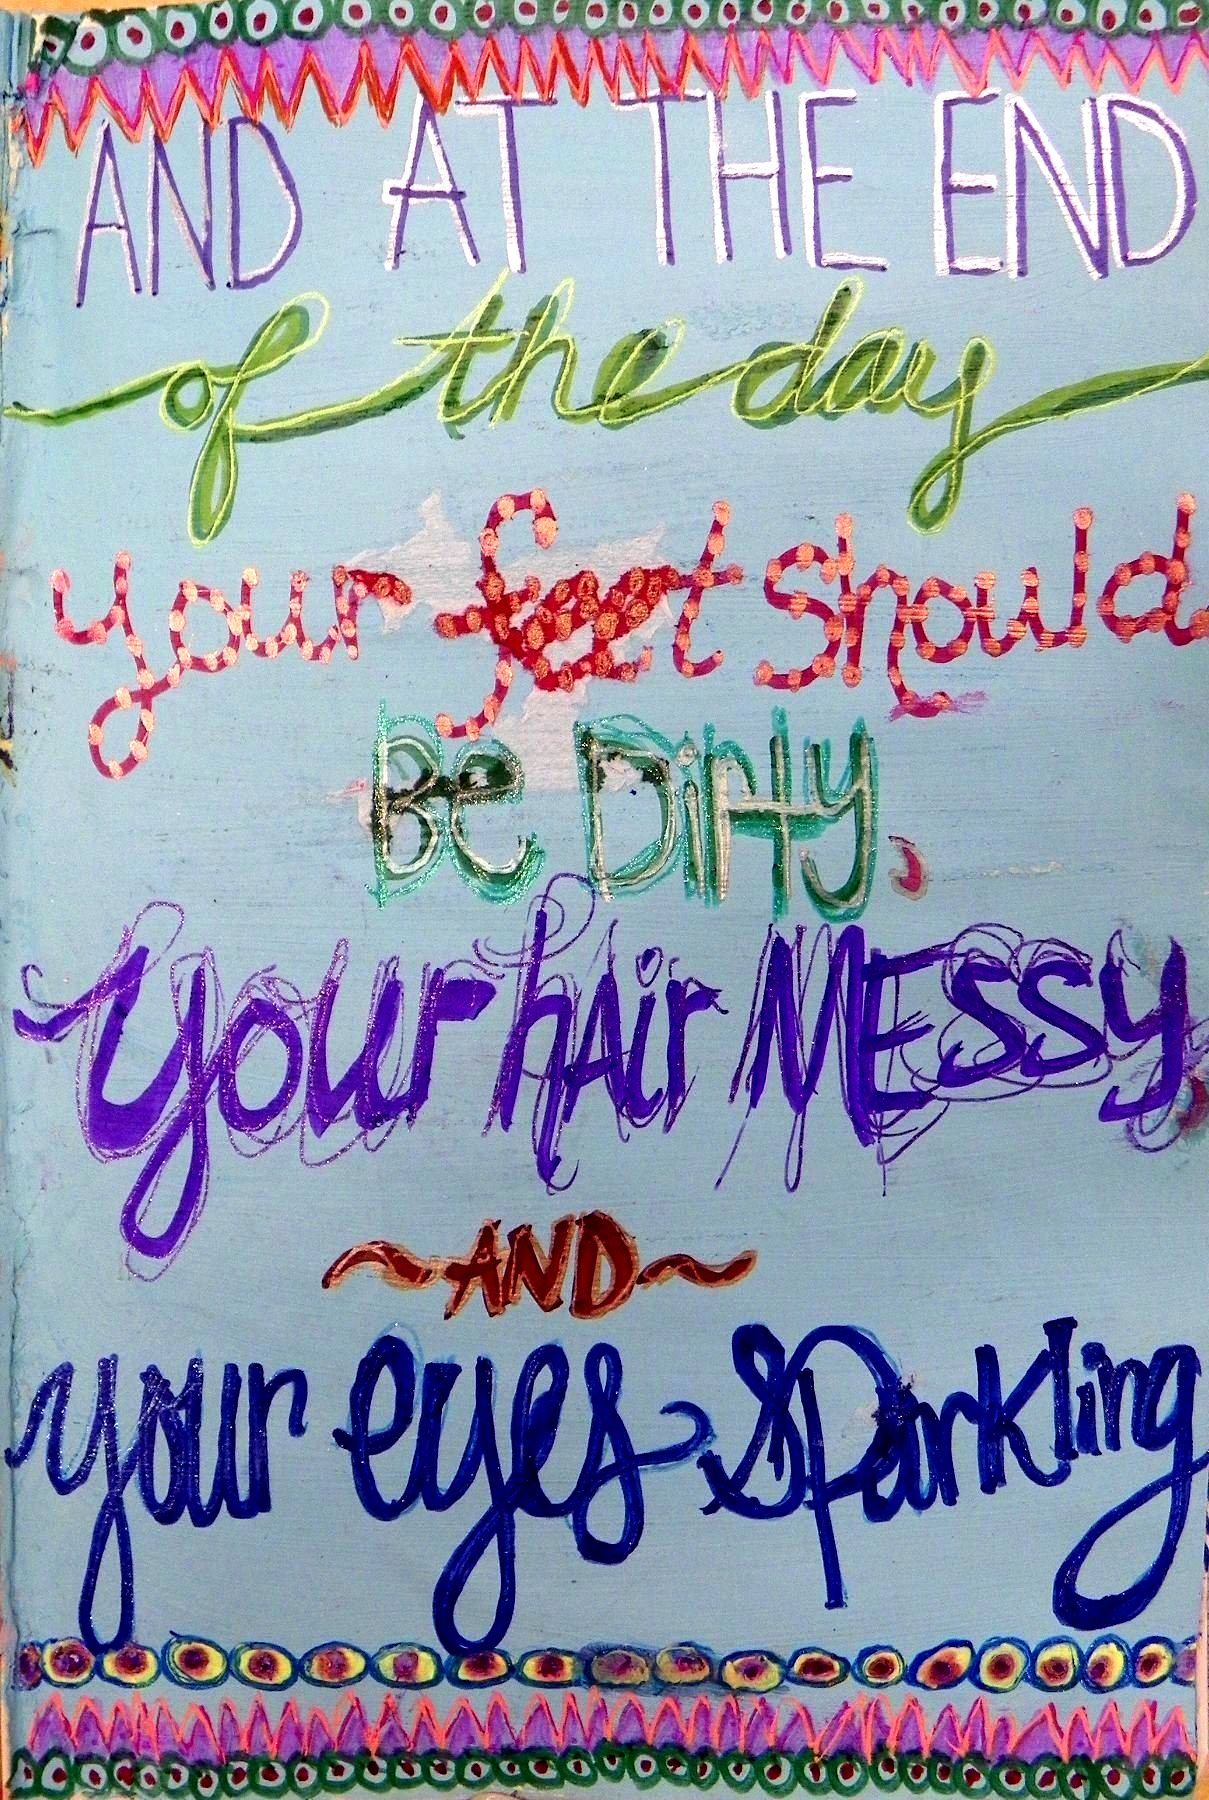 AND AT THE END
of the day
your feet should
Be Dirty,
your hAir MESSy
~AND~
your eyes sparkling